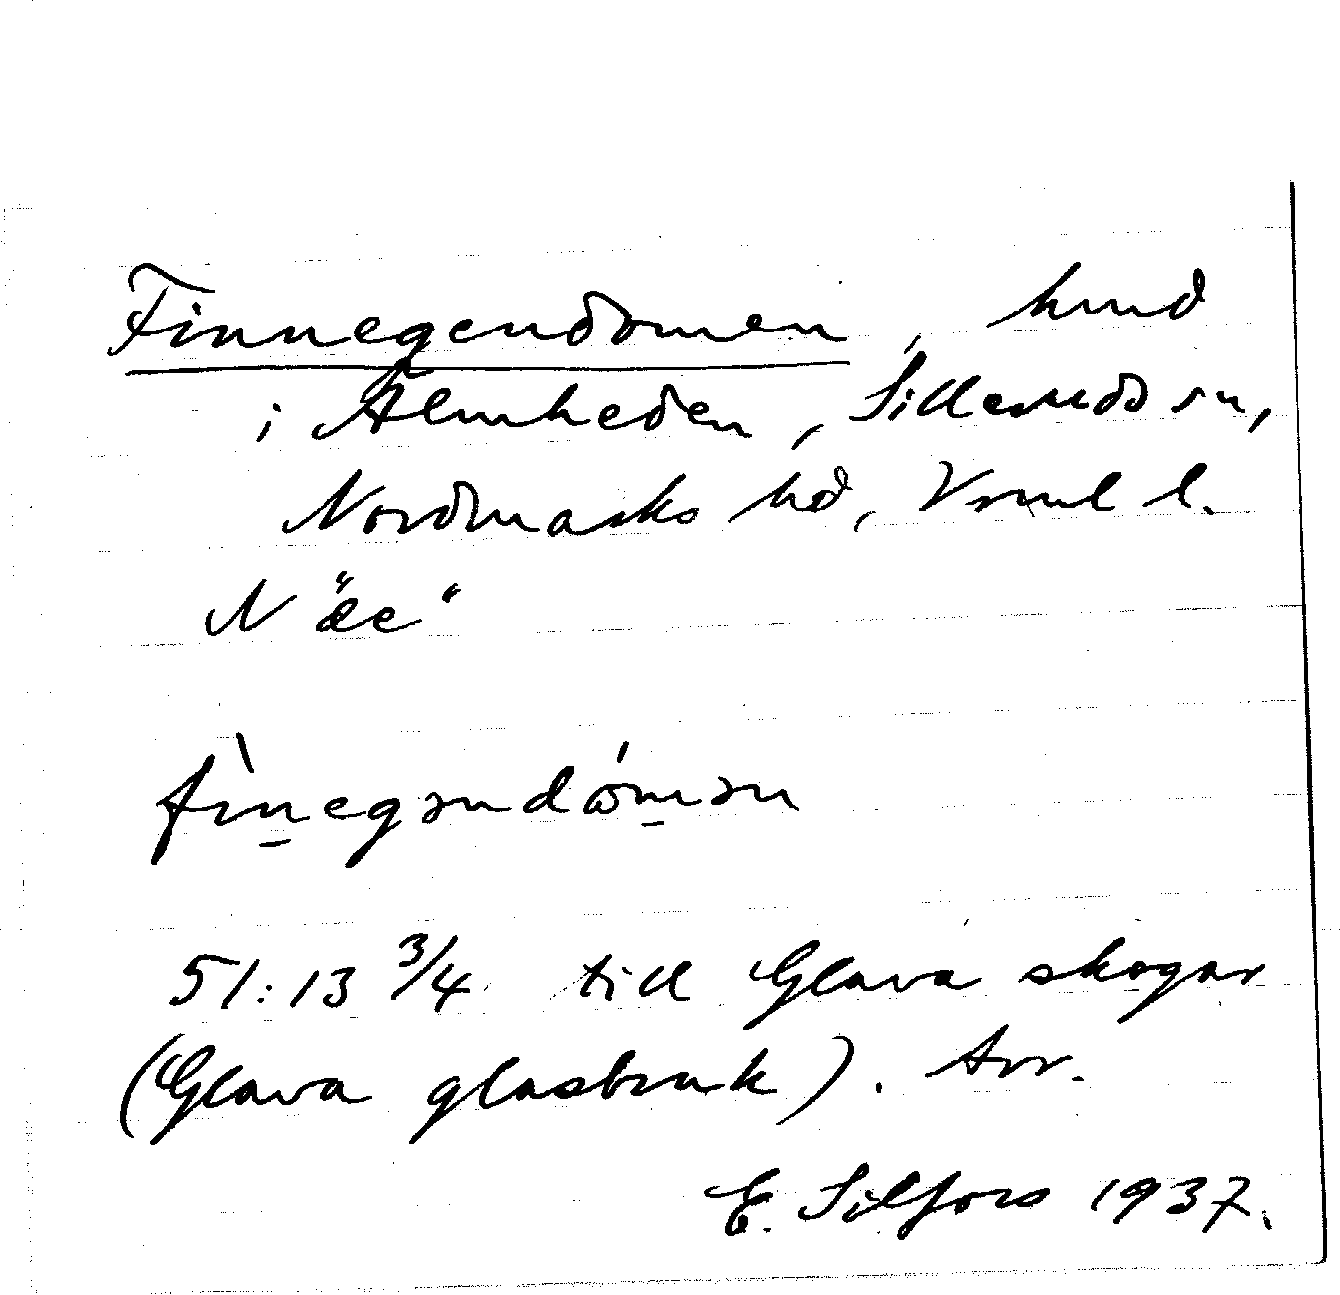 Finnegendomen, hmd
i Älmheden, Silleruds sn,
Nordmarks hd, Vrml l.
N "æe"
fìn̲egəndóm̲ən
51:13 3/4 till Glava skogar
(Glava glasbruk). Arr.
E. Silfors 1937.